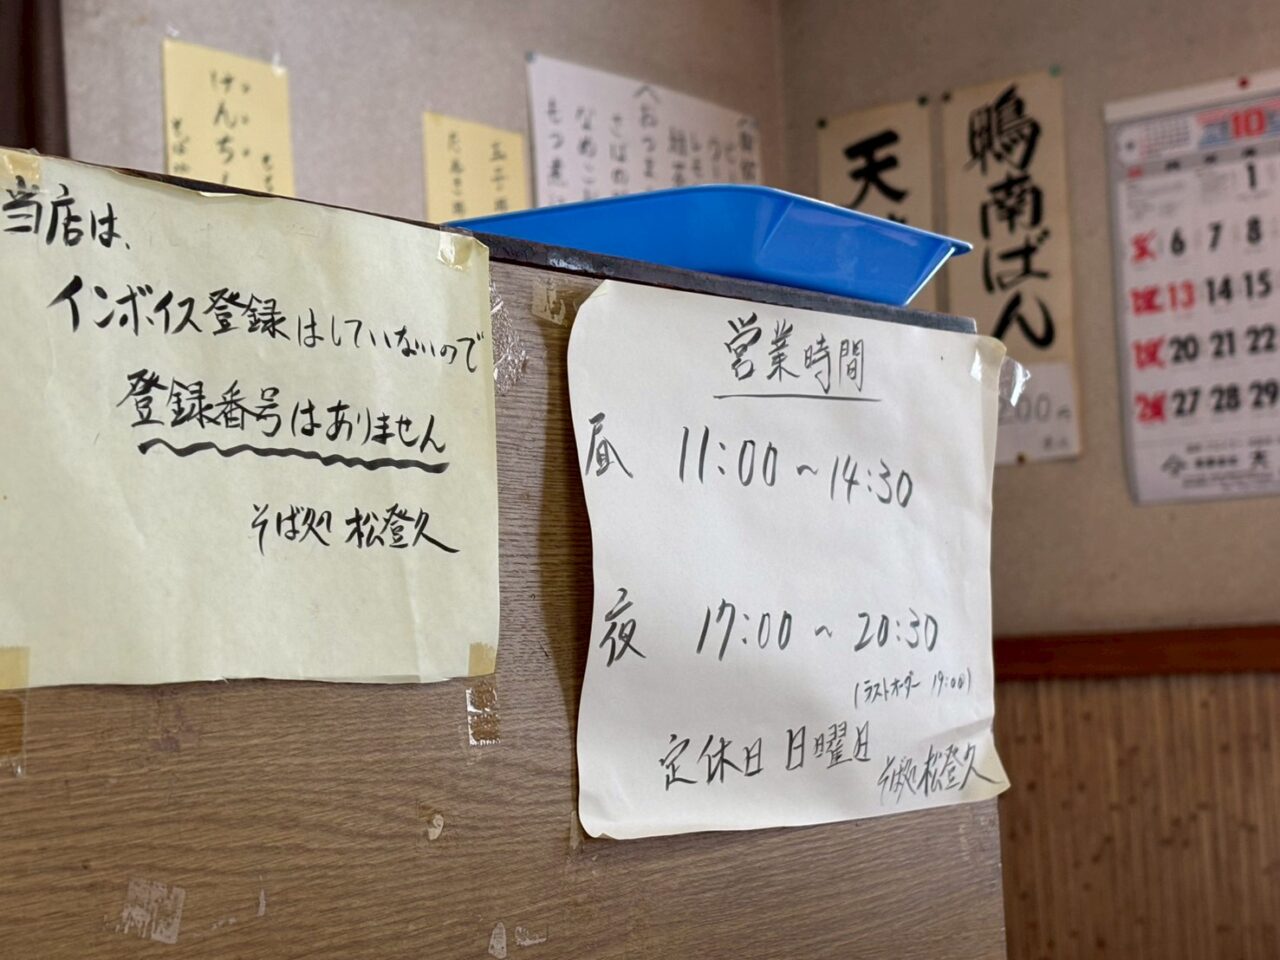 当店は、
インボイス登録はしていないので
登録番号はありません
そば処 松登久
営業時間
昼 11:00～14:30
夜 17:00～20:30
(ラストオーダー 19:00)
定休日 日曜日
そば処 松登久
けんち
おつま
さばの
なめこ
もつ煮
天
鴨南ばん
200円
10
1
6 7 8
13 14 15
20 21 22
27 28 29